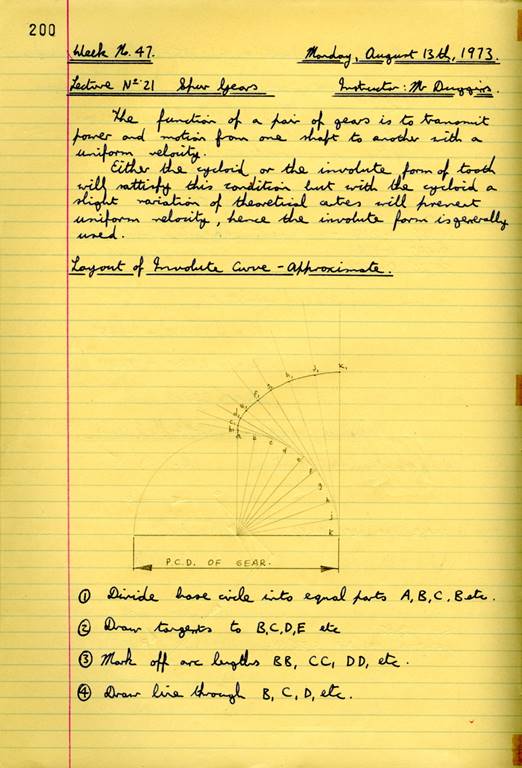 200
Week No. 47. Monday, August 13th, 1973.
Lecture No. 21 Spur Gears Instructor: Mr Duggins.
The function of a pair of gears is to transmit
power and motion from one shaft to another with a
uniform velocity.
Either the cycloid or the involute form of tooth
will sattisfy this condition but with the cycloid a
slight variation of theoretical cutes will prevent
uniform velocity, hence the involute form is generally
used.
Layout of Involute Curve - Approximate.
g, h, j, k,
A B C D E F G H J K
P.C.D. OF GEAR.
① Divide base circle into equal parts A, B, C, B etc.
② Draw tangents to B, C, D, E etc
③ Mark off arc lengths BB, CC, DD, etc.
④ Draw line through B, C, D, etc.